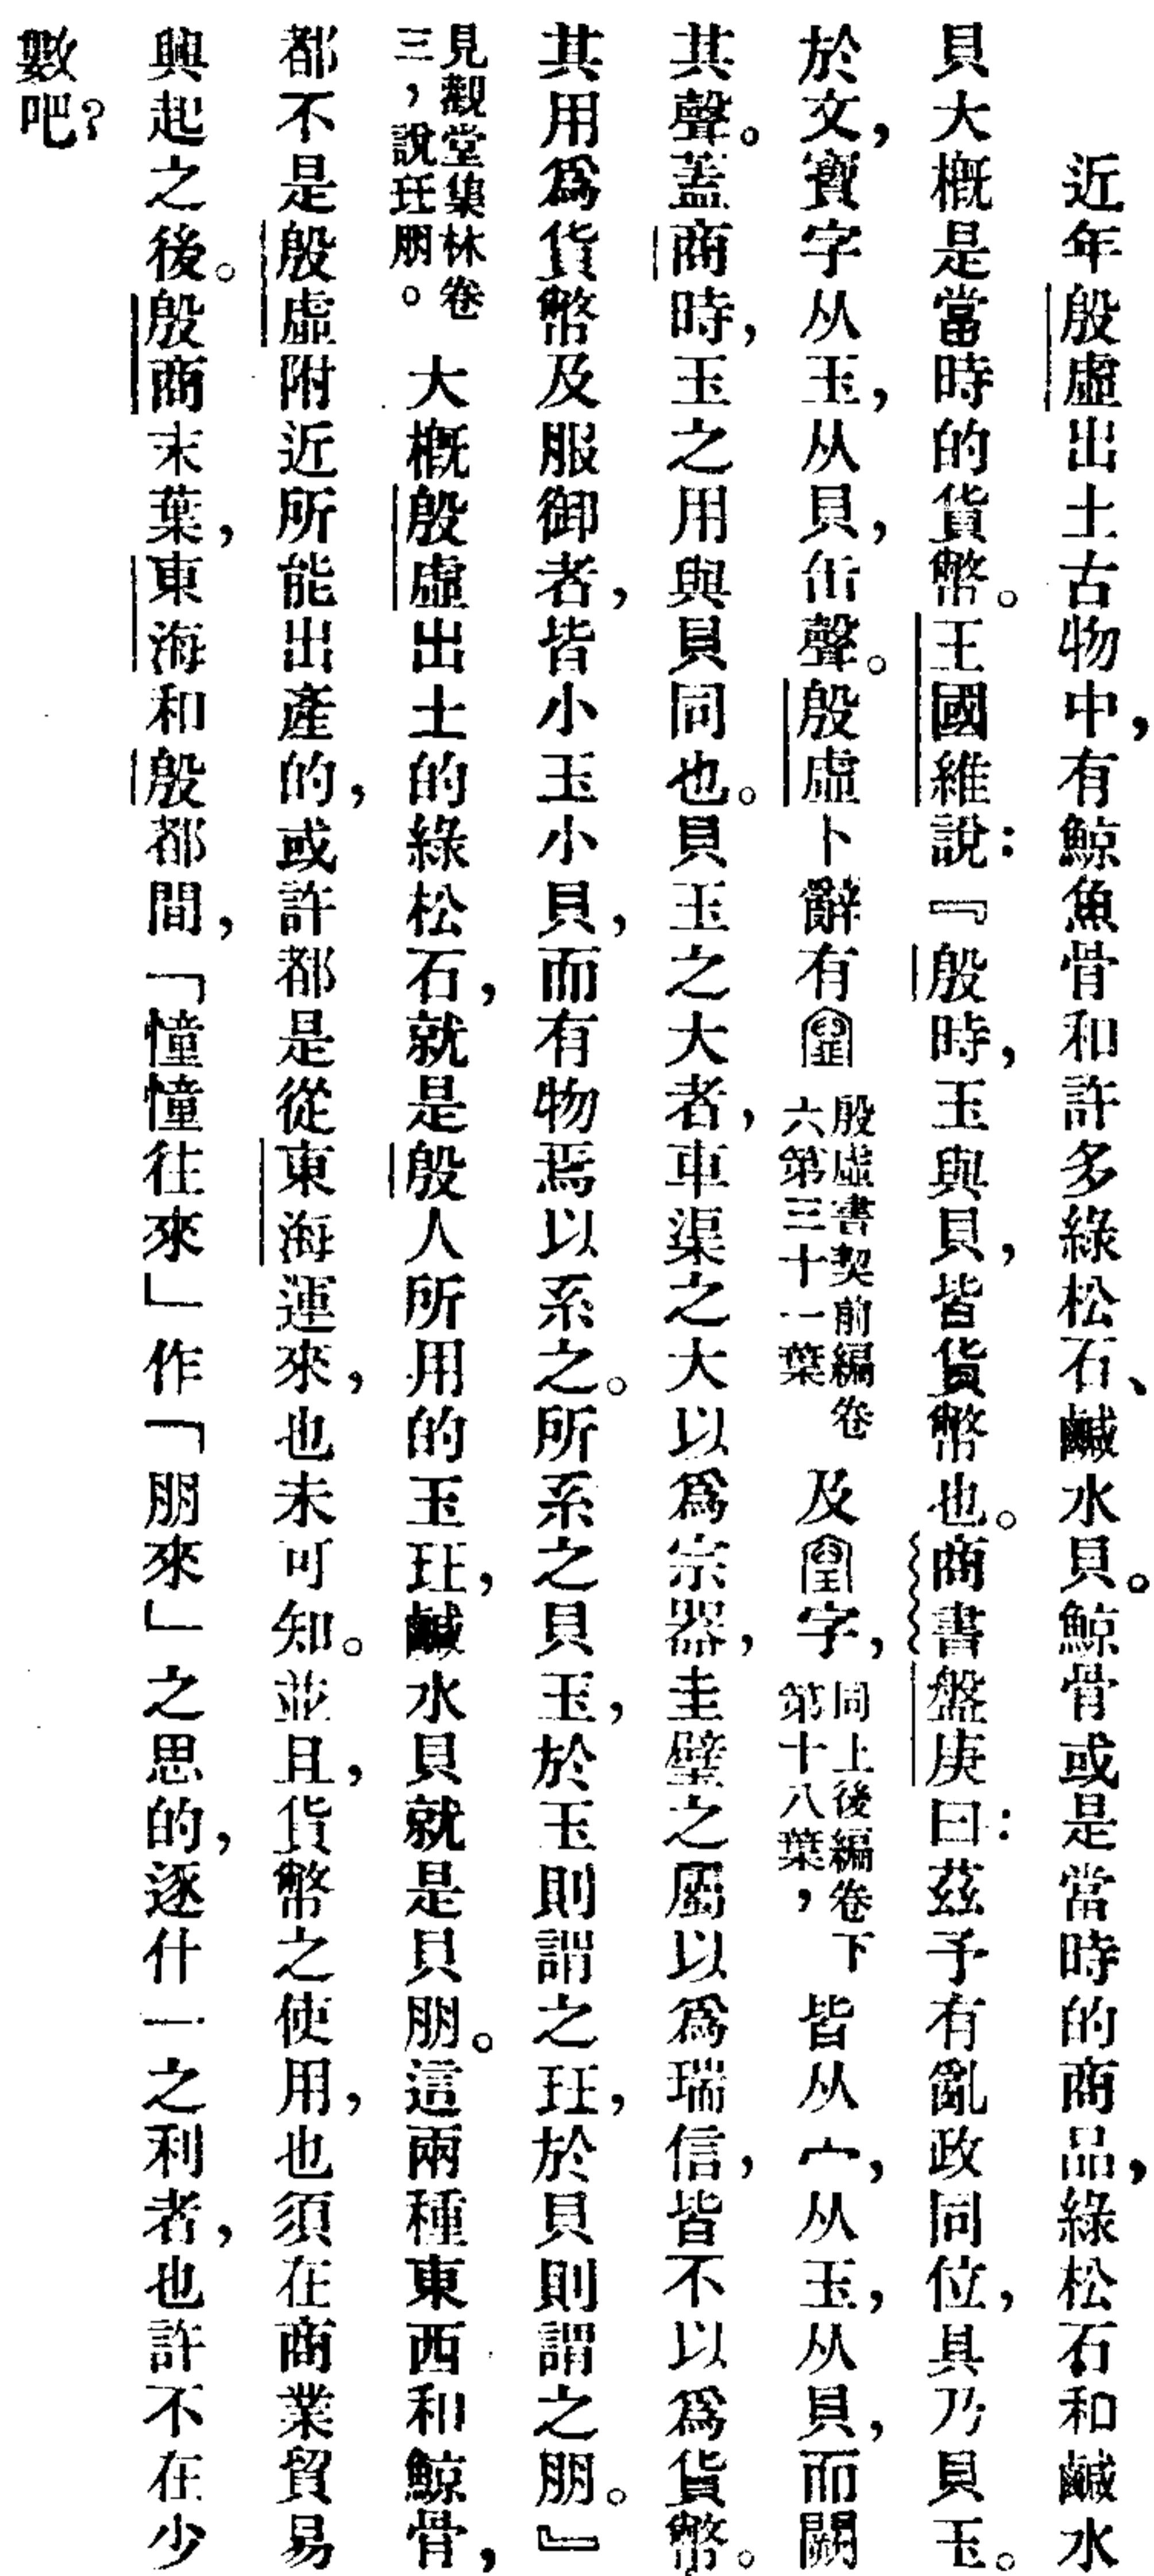 近年殷虛出土古物中，有鯨魚骨和許多綠松石、鹹水貝。鯨骨或是當時的商品，綠松石和鹹水
貝大概是當時的貨幣。王國維說：『殷時，玉與貝，皆貨幣也。商書盤庚曰：茲予有亂政同位，具乃貝玉。
於文，寶字从玉，从貝，缶聲。殷虛卜辭有 殷虛書契前編卷六第三十一葉 及 字，同上後編卷下第十八葉， 皆从宀，从玉，从貝，而闕
其聲。蓋商時，玉之用與貝同也。貝玉之大者，車渠之大以爲宗器，圭璧之屬以爲瑞信，皆不以爲貨幣。
其用爲貨幣及服御者，皆小玉小貝，而有物焉以系之。所系之貝玉，於玉則謂之玨，於貝則謂之朋。』
見觀堂集林卷三，說玨朋。 大概殷虛出土的綠松石，就是殷人所用的玉玨，鹹水貝就是貝朋。這兩種東西和鯨骨，
都不是殷虛附近所能出產的，或許都是從東海運來，也未可知。並且，貨幣之使用，也須在商業貿易
興起之後。殷商末葉，東海和殷都間，「憧憧往來」作「朋來」之思的，逐什一之利者，也許不在少
數吧？